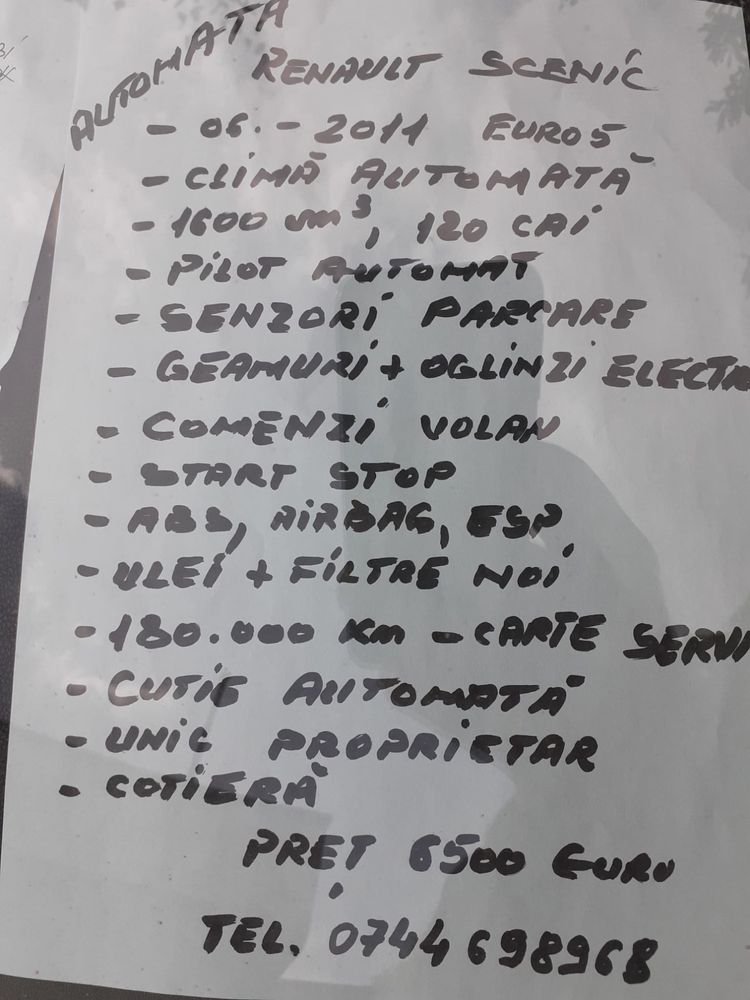 AUTOMATA
RENAULT SCENIC
- 06.- 2011 EURO5
- CLIMĂ AUTOMATĂ
- 1600 cm³, 120 CAI
- PILOT AUTOMAT
- SENZORI PARCARE
- GEAMURI + OGLINZI ELECTR
- COMENZI VOLAN
- START STOP
- ABS, AIRBAG, ESP
- ULEI + FILTRE NOI
- 180.000 Km - CARTE SERVI
- CUTIE AUTOMATĂ
- UNIC PROPRIETAR
- COTIERĂ
PREȚ 6500 EURO
TEL. 0744 698968